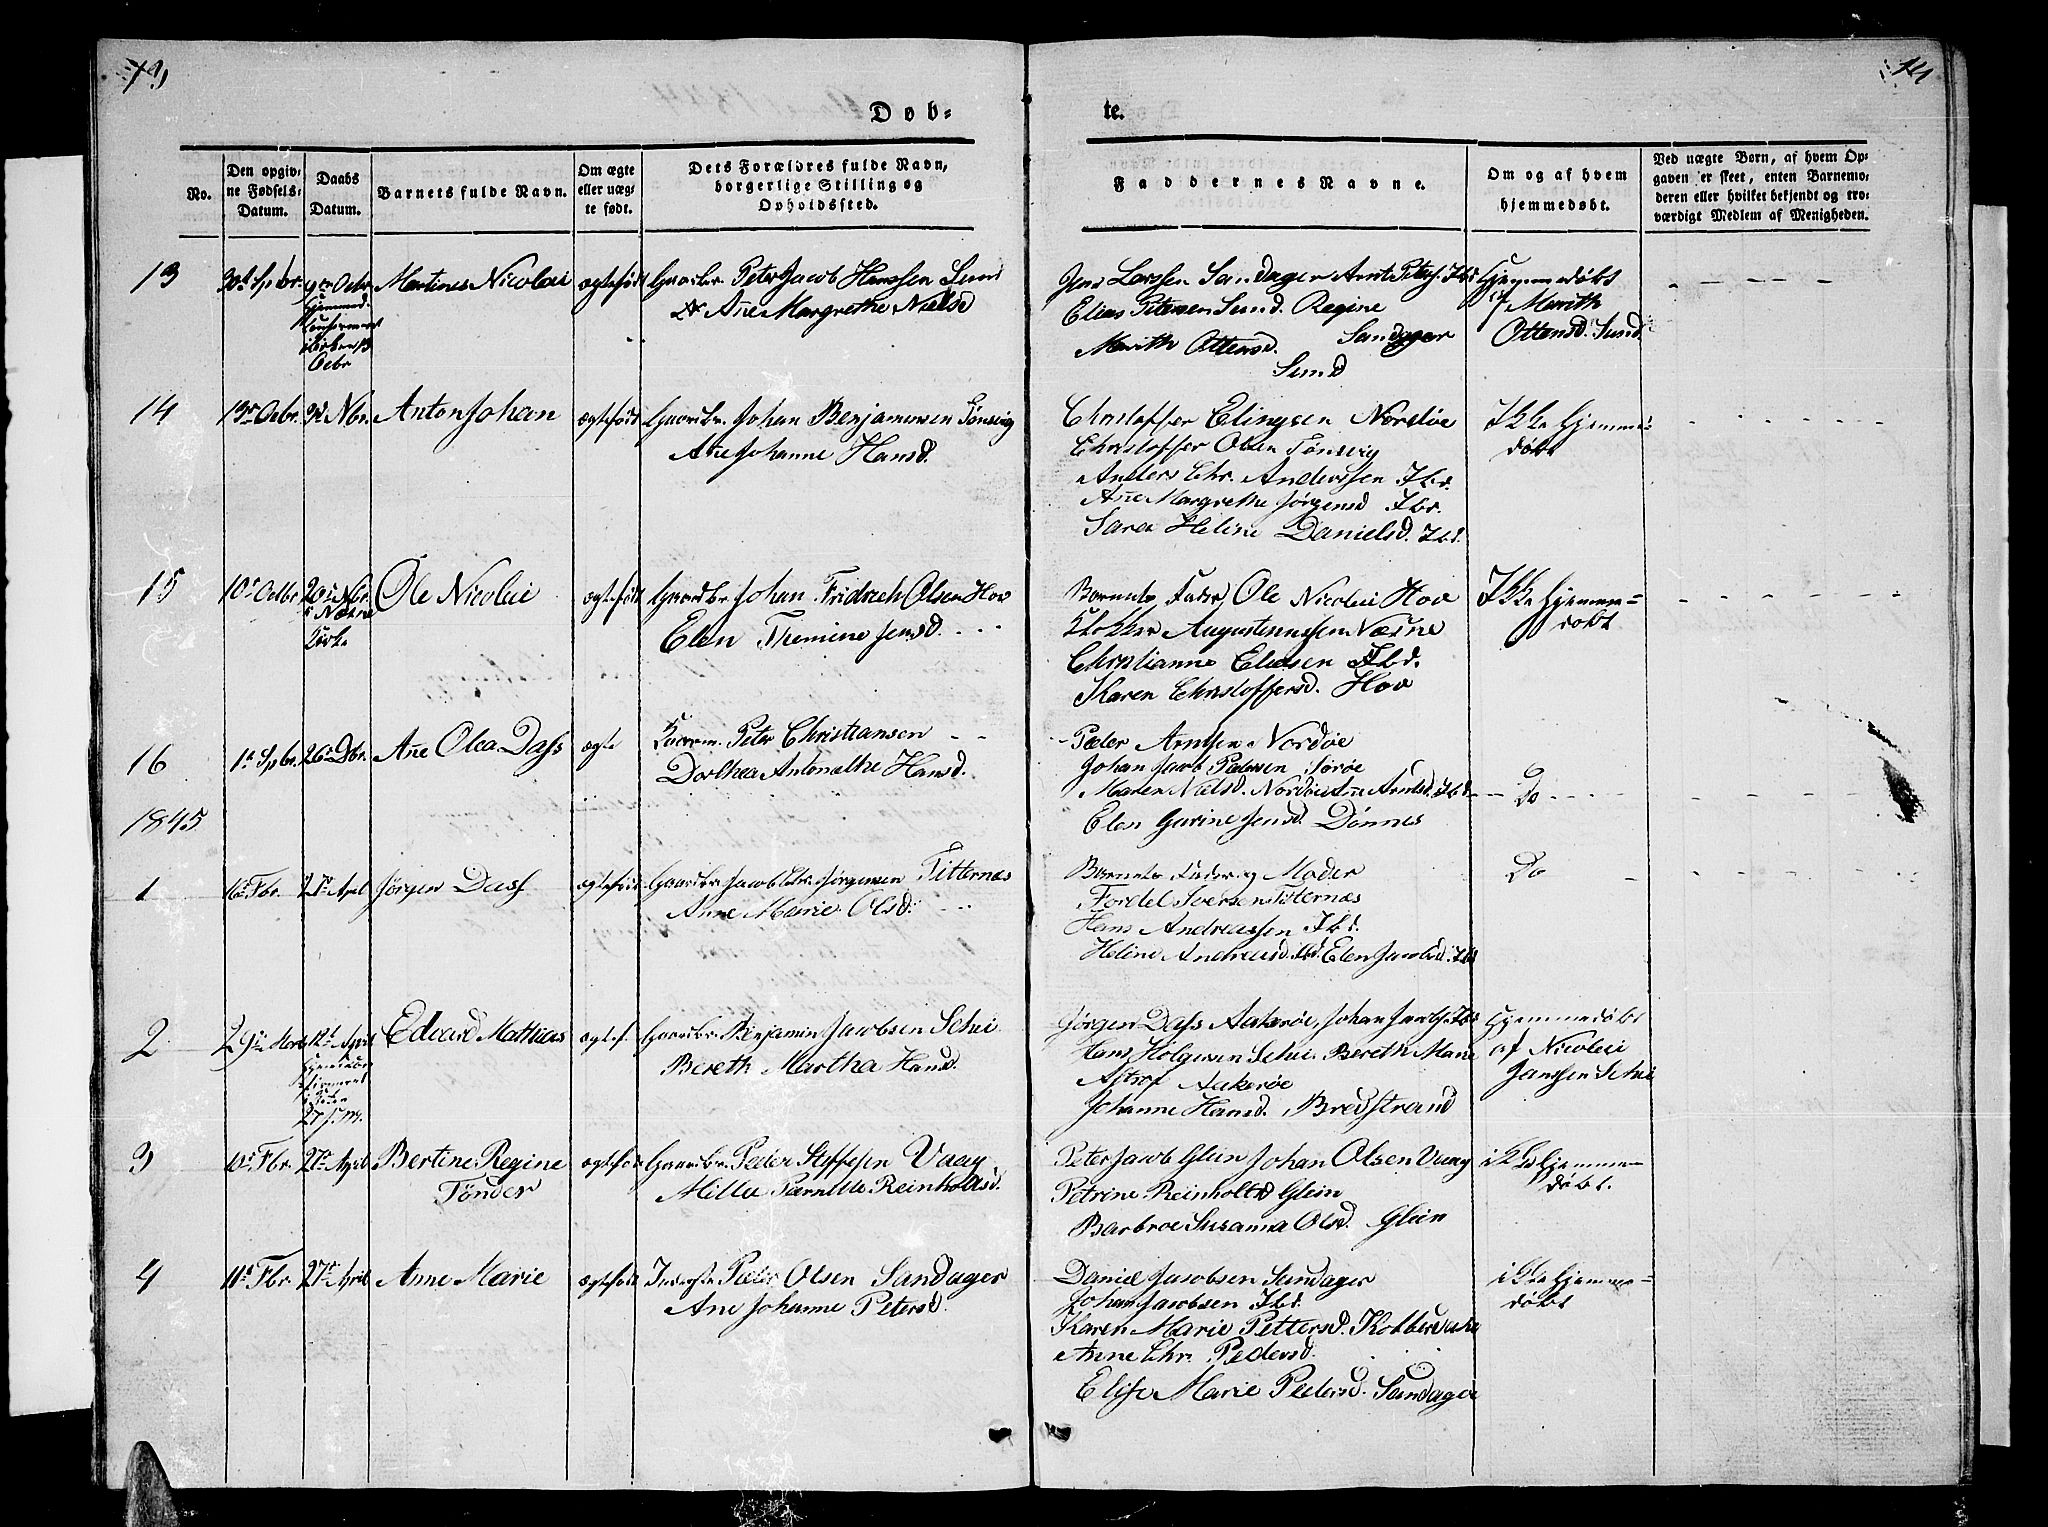 13
14
Døb-
te.
No.
Den opgiv-
ne Fødsels-
Datum.
Daabs
Datum.
Barnets fulde Navn.
Om ægte
eller uæg-
te født.
Dets Forældres fulde Navn,
borgerlige Stilling og
Opholdssted.
Faddernes Navne.
Om og af hvem
hjemmedøbt.
Ved uægte Børn, af hvem Op-
gaven er skeet, enten Barnemo-
deren eller hvilket bekjendt og tro-
værdigt Medlem af Menigheden.
13
30t Spbr.
9de Ocbr.
Martines Nicolai
ægtefødt
Gaardbr. Peter Jacob Hanssen Sund
Ane Margrethe Nielsd
Jens Larssen Sandager Arnt Peters. Ibd
Elias Petersen Sund. Regine
Sandager
Marith Ottersd.
Sund
Hjemmedøbt
af Marith
Ottersd. Sund
14
13r Ocbr.
3d Nbr.
Anton Johan
ægtefødt
Gaardbr. Johan Benjaminsen Tønsvig
Ane Johanne Hansd.
Christoffer Elingsen Nordøe
Christoffer Olsen Tønsvig
Anders Chr. Anderssen Ibd.
Ane Margrethe Jørgensd Ibd.
Sara Heline Danielsd. Ibd.
Ikke Hjemme-
døbt
15
10r Octbr.
20de Nbr.
i Næsne
Kirke
Ole Nicolai
ægtefødt
Gaardbr Johan Fridrich Olsen Hov
Elen Themine Jensd.
Barnets Fader, Ole Nicolai Hov
Klokker Augustinussen Næsne
Christianne Eliesen Ibd.
Karen Christoffersd. Hov
Ikke Hjemme-
døbt
16
1t Spbr.
26 Dbr.
Ane Olea Dass
ægte
Peter Christiansen
Dorthea Antonethe Hansd.
Peder Arntsen Nordøe
Johan Jacob Pedersen Sørøe
Maren Nielsd. Nordøe Ane Arntsd. Ibd
Elen Gurine Jensd. Dønnes
Do
1845
1
16 Fbr.
27 Apl
Jørgen Dass
ægtefødt
Gaardbr. Jacob Chr. Jørgensen Titternæs
Anne Marie Olsd.
Barnets Fader og Moder
Fordel Iversen Titternæs
Hans Andreassen Ibd.
Heline Andreasd. Ibd. Elen Jacobsd. Ibd
Do
2
29de Marts
12t April
27 s. M.
Edvard Mathias
ægtef.
Gaardbr. Benjamin Jacobsen Schei
Bereth Martha Hansd.
Jørgen Dass Aakerøe, Johan Jacobs. Ibd
Hans Holgersen Schei Bereth Marie
Astrop Aakerøe
Johanne Hansd. Bredstrand
Hjemmedøbt
af Nicolai
Janssen Schei
3
10 Fbr.
27 April
Bertine Regine
Tønder
ægtefødt
Gaardbr. Peder Steffesen Vaag
Milla Pernille Reinholtsd.
Peter Jacob Glein Johan Olsen Vaag
Petrine Reinholtsd Glein
Barbroe Susanna Olsd. Glein
ikke Hjemme-
døbt.
4
11t Fbr.
27 April
Anne Marie
ægtefødt
Inderste Peder Olsen Sandager
Ane Johanne Petersd.
Daniel Jacobsen Sandager
Johan Jacobsen Ibd.
Karen Marie Pettersd. Kobberdahl
Anne Chr. Pedersd.
Elise Marie Pedersd. Sandager
ikke Hjemme-
døbt